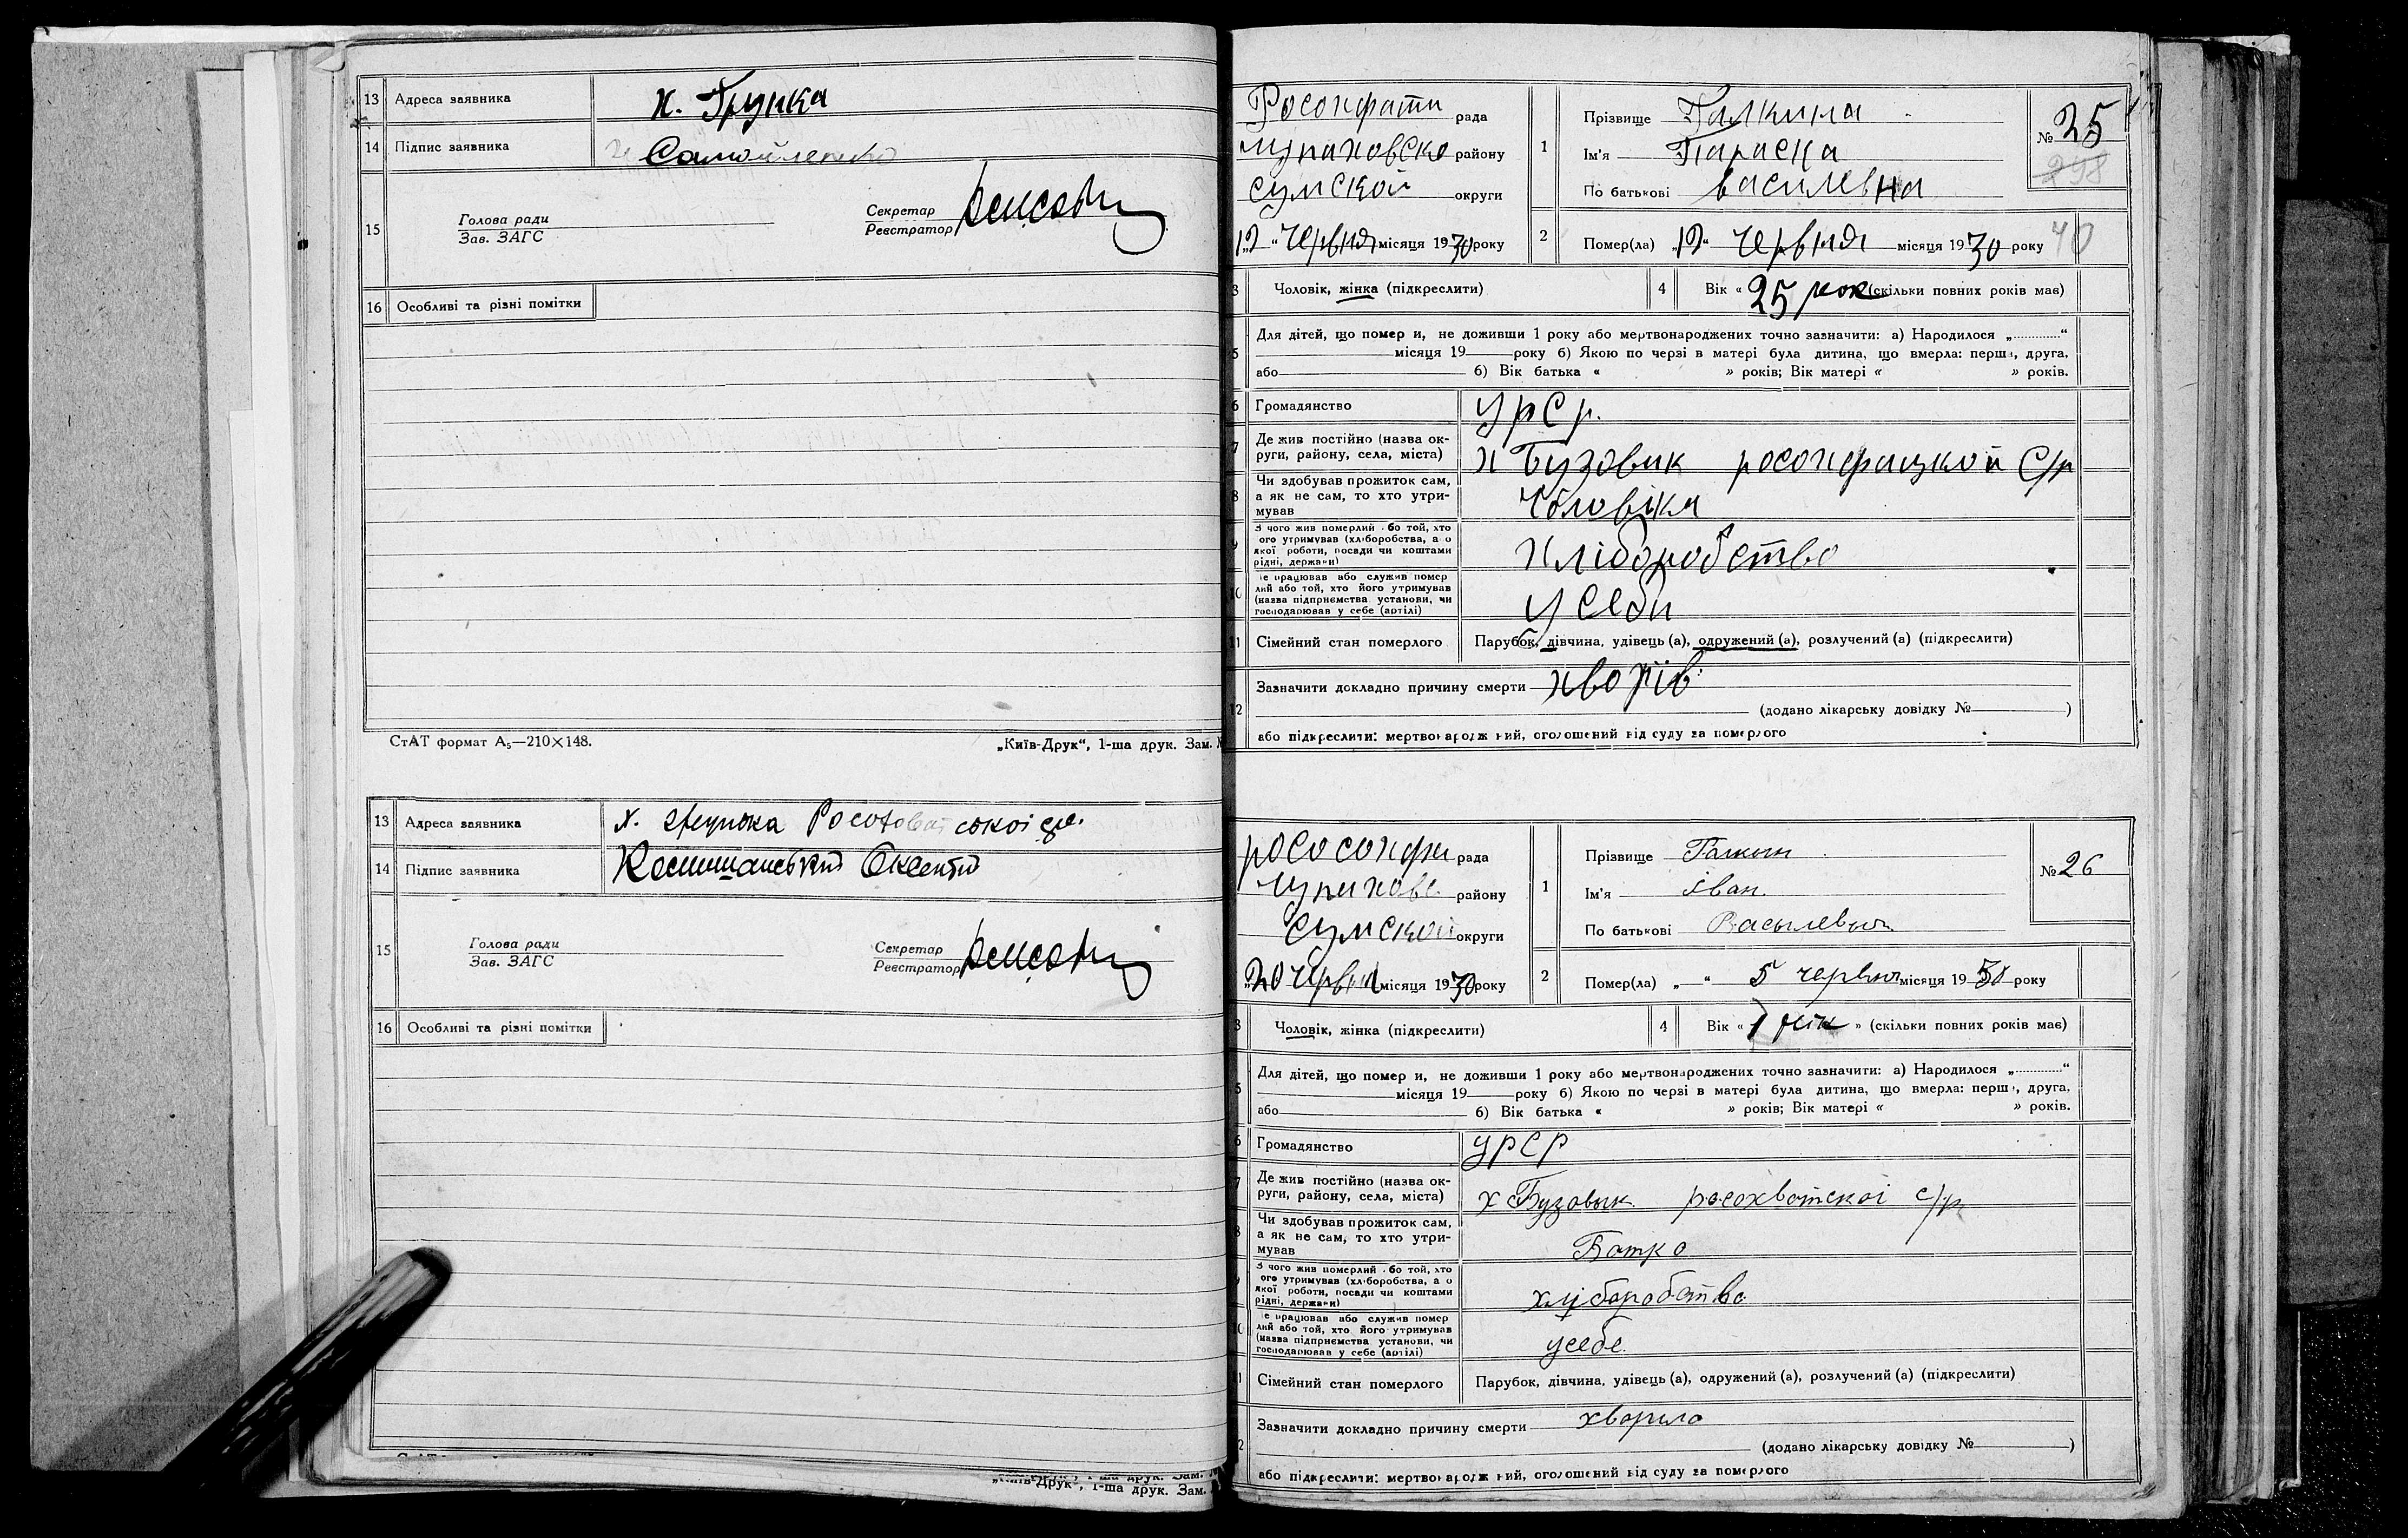 13 Адреса заявника х. Грунка
14 Підпис заявника Самойленко
15 Голова ради
Зав. ЗАГС
Секретар
Реєстратор
16 Особливі та різні помітки
СтАТ формат А₅—210×148.
„Київ-Друк“, 1-ша друк. Зам. №
13 Адреса заявника х.
14 Підпис заявника
15 Голова ради
Зав. ЗАГС
Секретар
Реєстратор
16 Особливі та різні помітки
„Київ-Друк“, 1-ша друк. Зам.
рада
району
Сумской округи
„12“ червня місяця 1930 року
1 Прізвище Галкина
Ім'я Параска
По батькові василевна
№ 25
298
2 Помер(ла) „12“ червня місяця 1930 року
40
3 Чоловік, жінка (підкреслити)
4 Вік « 25 рок (скільки повних років має)
5 Для дітей, що помер и, не доживши 1 року або мертвонароджених точно зазначити: а) Народилося „ “
місяця 19 року б) Якою по черзі в матері була дитина, що вмерла: перша, друга,
або б) Вік батька « » років; Вік матері « » років.
6 Громадянство УРСР.
7 Де жив постійно (назва ок-
руги, району, села, міста) х Бузовик росохфацкой С/р
8 Чи здобував прожиток сам,
а як не сам, то хто утри-
мував Чоловіка
9 З чого жив померлий або той, хто
ого утримував (хліборобства, а о
якої роботи, посади чи коштами
рідні, держави) Хліборобство
10 е працював або служив помер
лий або той, хто його утримував
(назва підприємства установи, чи
господарював у себе (артілі) у Себи
11 Сімейний стан померлого Парубок, дівчина, удівець (а), одружений (а), розлучений (а) (підкреслити)
12 Зазначити докладно причину смерти
(додано лікарську довідку № )
або підкреслити: мертвонароджений, оголошений від суду за померлого
рада
району
Сумской округи
„20 червня місяця 1930 року
1 Прізвище Галкин
Ім'я Іван.
По батькові Васылевыч
№ 26
2 Помер(ла) „—“ 5 червня місяця 19 року
3 Чоловік, жінка (підкреслити)
4 Вік « 1 рік » (скільки повних років має)
5 Для дітей, що помер и, не доживши 1 року або мертвонароджених точно зазначити: а) Народилося „ “
місяця 19 року б) Якою по черзі в матері була дитина, що вмерла: перша, друга,
або б) Вік батька « » років; Вік матері « » років.
6 Громадянство УРСР
7 Де жив постійно (назва ок-
руги, району, села, міста) х Бузовык росохватскоі с/р
8 Чи здобував прожиток сам,
а як не сам, то хто утри-
мував Батко
9 З чого жив померлий або той, хто
ого утримував (хліборобства, а о
якої роботи, посади чи коштами
рідні, держави) хліборобство
10 е працював або служив помер
лий або той, хто його утримував
(назва підприємства установи, чи
господарював у себе (артілі) усебе
11 Сімейний стан померлого Парубок, дівчина, удівець (а), одружений (а), розлучений (а) (підкреслити)
12 Зазначити докладно причину смерти хворило
(додано лікарську довідку № )
або підкреслити: мертвонароджений, оголошений від суду за померлого